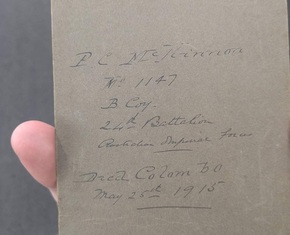 P C McKinnon
No 1147
B. Coy.
24th Battalion
Australian Imperial Force
Died Colombo
May 25th 1915